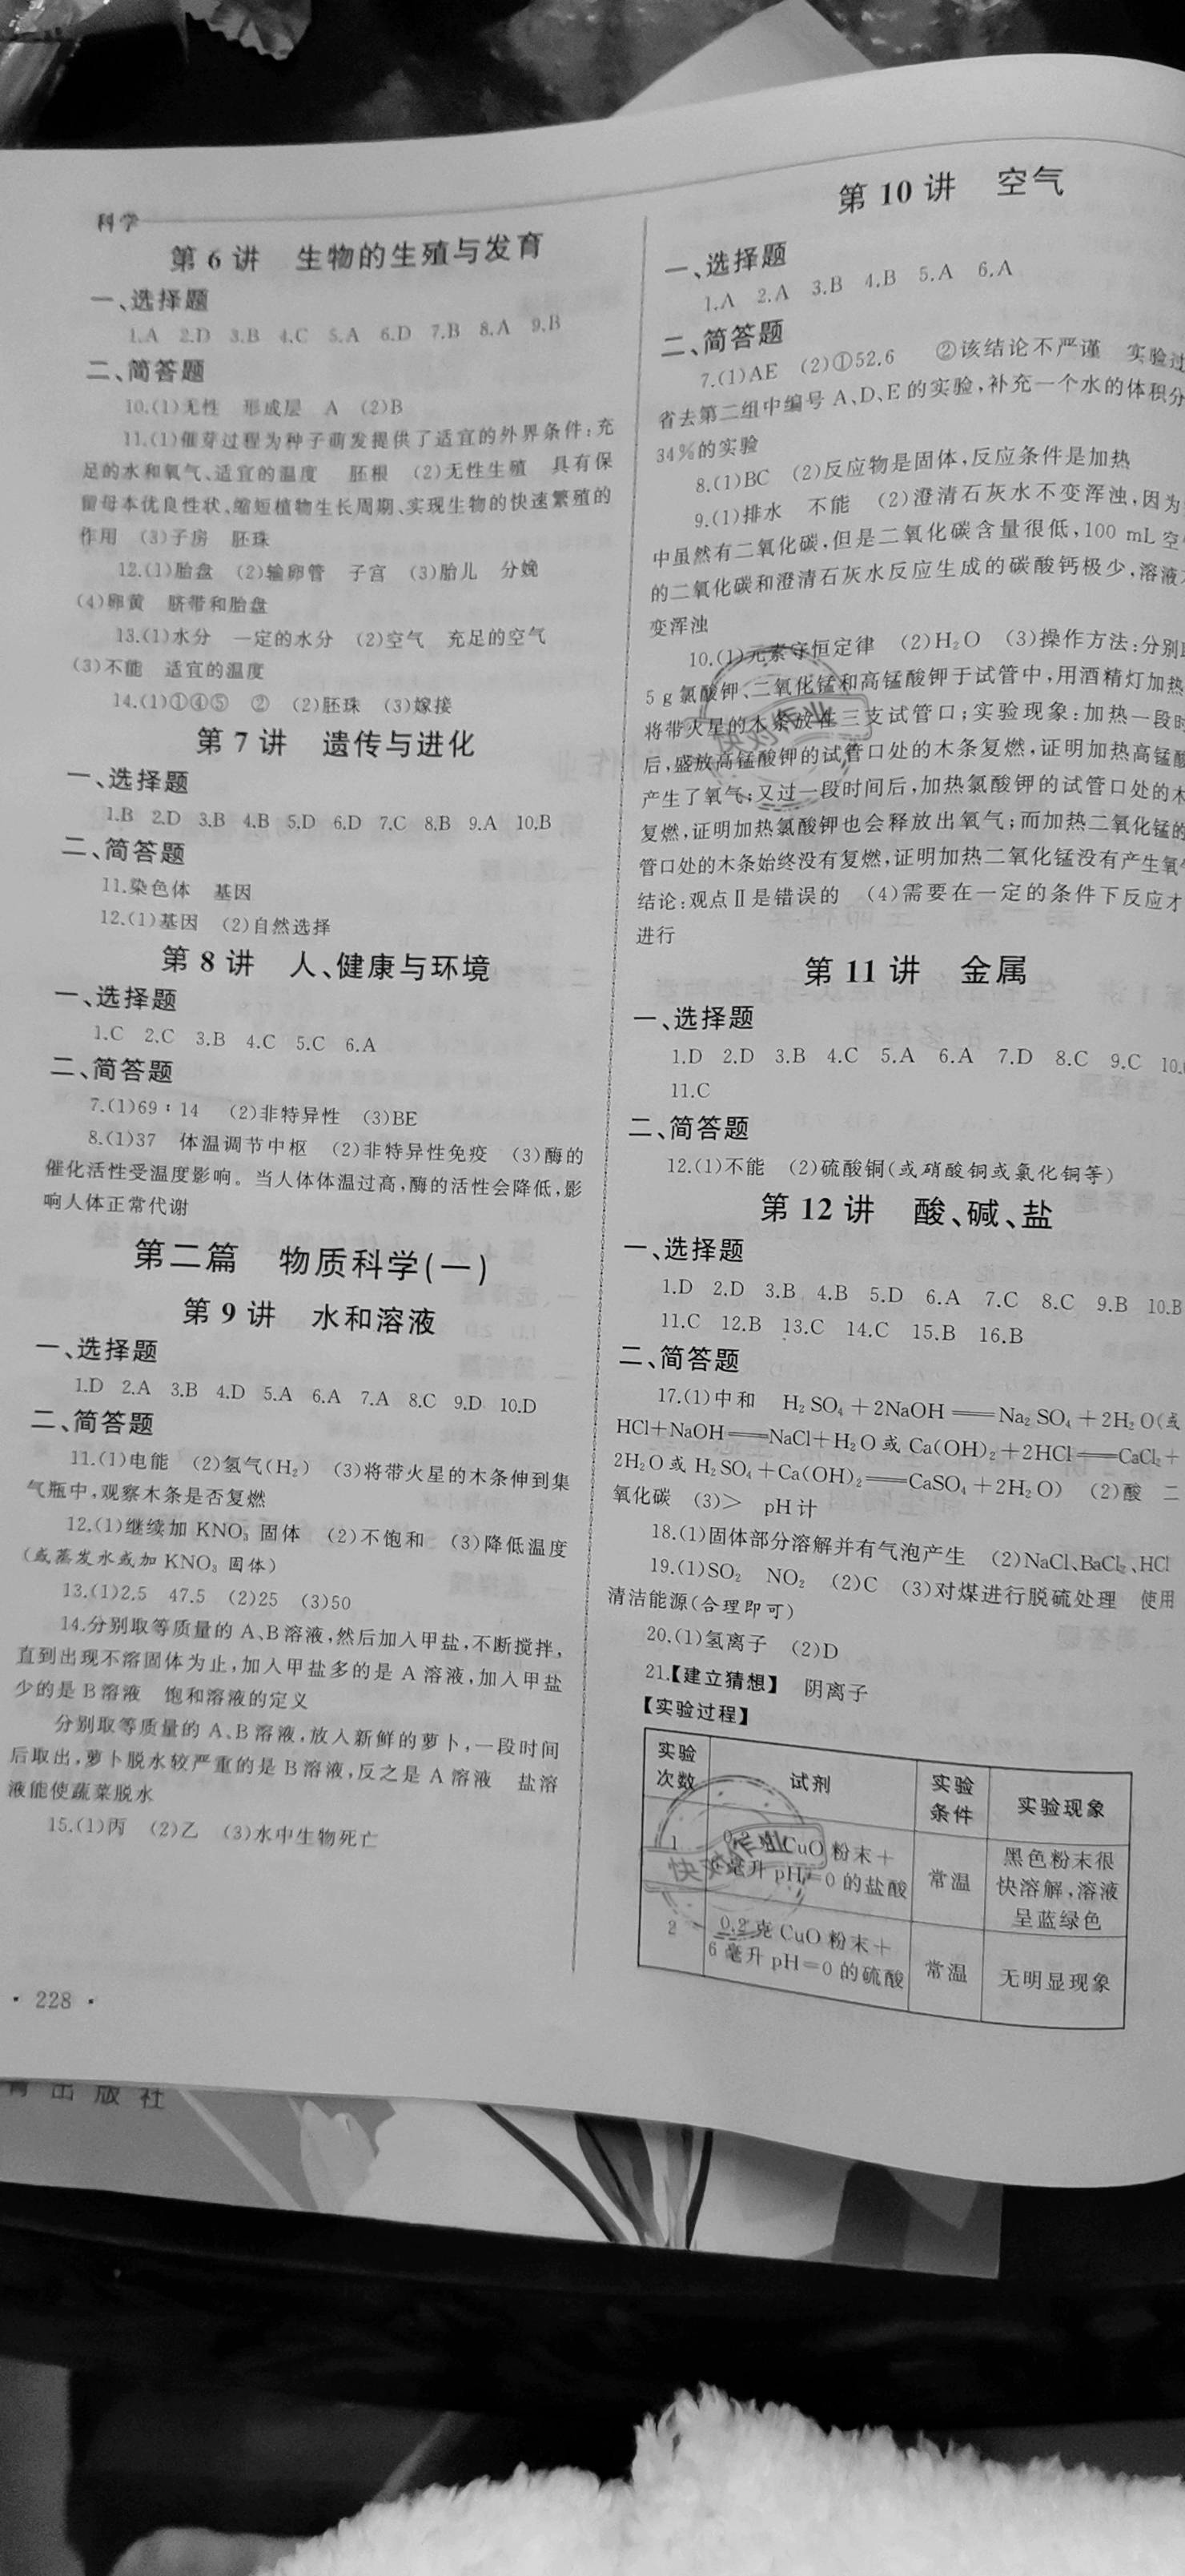 科学
第 6 讲　生物的生殖与发育
一、选择题
1.A 2.D 3.B 4.C 5.A 6.D 7.B 8.A 9.B
二、简答题
10.(1)无性　形成层　A　(2)B
11.(1)催芽过程为种子萌发提供了适宜的外界条件:充
足的水和氧气、适宜的温度　胚根　(2)无性生殖　具有保
留母本优良性状、缩短植物生长周期、实现生物的快速繁殖的
作用　(3)子房　胚珠
12.(1)胎盘　(2)输卵管　子宫　(3)胎儿　分娩
(4)卵黄　脐带和胎盘
13.(1)水分　一定的水分　(2)空气　充足的空气
(3)不能　适宜的温度
14.(1)①④⑤　②　(2)胚珠　(3)嫁接
第 7 讲　遗传与进化
一、选择题
1.B 2.D 3.B 4.B 5.D 6.D 7.C 8.B 9.A 10.B
二、简答题
11.染色体　基因
12.(1)基因　(2)自然选择
第 8 讲　人、健康与环境
一、选择题
1.C 2.C 3.B 4.C 5.C 6.A
二、简答题
7.(1)69∶14　(2)非特异性　(3)BE
8.(1)37　体温调节中枢　(2)非特异性免疫　(3)酶的
催化活性受温度影响。当人体体温过高,酶的活性会降低,影
响人体正常代谢
第二篇　物质科学(一)
第 9 讲　水和溶液
一、选择题
1.D 2.A 3.B 4.D 5.A 6.A 7.A 8.C 9.D 10.D
二、简答题
11.(1)电能　(2)氢气(H₂)　(3)将带火星的木条伸到集
气瓶中,观察木条是否复燃
12.(1)继续加 KNO₃ 固体　(2)不饱和　(3)降低温度
(或蒸发水或加 KNO₃ 固体)
13.(1)2.5　47.5　(2)25　(3)50
14.分别取等质量的 A、B 溶液,然后加入甲盐,不断搅拌,
直到出现不溶固体为止,加入甲盐多的是 A 溶液,加入甲盐
少的是 B 溶液　饱和溶液的定义
分别取等质量的 A、B 溶液,放入新鲜的萝卜,一段时间
后取出,萝卜脱水较严重的是 B 溶液,反之是 A 溶液　盐溶
液能使蔬菜脱水
15.(1)丙　(2)乙　(3)水中生物死亡
· 228 ·
第 10 讲　空气
一、选择题
1.A 2.A 3.B 4.B 5.A 6.A
二、简答题
7.(1)AE　(2)①52.6　②该结论不严谨　实验过
省去第二组中编号 A、D、E 的实验,补充一个水的体积分
34%的实验
8.(1)BC　(2)反应物是固体,反应条件是加热
9.(1)排水　不能　(2)澄清石灰水不变浑浊,因为
中虽然有二氧化碳,但是二氧化碳含量很低,100 mL 空
的二氧化碳和澄清石灰水反应生成的碳酸钙极少,溶液
变浑浊
10.(1)元素守恒定律　(2)H₂O　(3)操作方法:分别
5 g 氯酸钾、二氧化锰和高锰酸钾于试管中,用酒精灯加热
将带火星的木条放在三支试管口;实验现象:加热一段时
后,盛放高锰酸钾的试管口处的木条复燃,证明加热高锰酸
产生了氧气;又过一段时间后,加热氯酸钾的试管口处的木
复燃,证明加热氯酸钾也会释放出氧气;而加热二氧化锰的
管口处的木条始终没有复燃,证明加热二氧化锰没有产生氧气
结论:观点Ⅱ是错误的　(4)需要在一定的条件下反应才
进行
第 11 讲　金属
一、选择题
1.D 2.D 3.B 4.C 5.A 6.A 7.D 8.C 9.C 10.
11.C
二、简答题
12.(1)不能　(2)硫酸铜(或硝酸铜或氯化铜等)
第 12 讲　酸、碱、盐
一、选择题
1.D 2.D 3.B 4.B 5.D 6.A 7.C 8.C 9.B 10.B
11.C 12.B 13.C 14.C 15.B 16.B
二、简答题
17.(1)中和　H₂SO₄＋2NaOH══Na₂SO₄＋2H₂O(或
HCl＋NaOH══NaCl＋H₂O 或 Ca(OH)₂＋2HCl══CaCl₂＋
2H₂O 或 H₂SO₄＋Ca(OH)₂══CaSO₄＋2H₂O)　(2)酸　二
氧化碳　(3)＞　pH 计
18.(1)固体部分溶解并有气泡产生　(2)NaCl、BaCl₂、HCl
19.(1)SO₂　NO₂　(2)C　(3)对煤进行脱硫处理　使用
清洁能源(合理即可)
20.(1)氢离子　(2)D
21.【建立猜想】　阴离子
【实验过程】
实验次数　试剂　实验条件　实验现象
1　0.2 克 CuO 粉末＋　常温　黑色粉末很
毫升 pH＝0 的盐酸　快溶解,溶液
呈蓝绿色
2　0.2 克 CuO 粉末＋　常温　无明显现象
6 毫升 pH＝0 的硫酸
快对作业
快对作业
育出版社